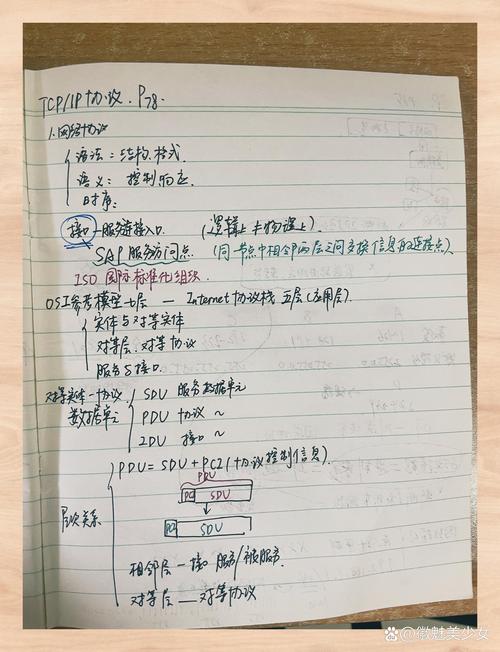 TCP/IP协议. P78.
1.网络协议
语法：结构.格式.
语义：控制响应.
时序：
接口—服务链接入口. (逻辑上≠物理上).
SAP服务访问点. (同一节点中相邻两层之间交换信息的连接点).
ISO 国际标准化组织.
OSI参考模型七层 — Internet协议栈 五层(应用层).
实体与对等实体
对等层.对等协议
服务与接口.
对等实体—协议 SDU 服务数据单元
数据单元 PDU 协议 ~
IDU 接口 ~
PDU = SDU + PCI (协议控制信息).
PDU
PCI SDU
层次关系
PCI SDU
相邻层 — 接口 服务/被服务.
对等层 — 对等协议
@徽魅美少女